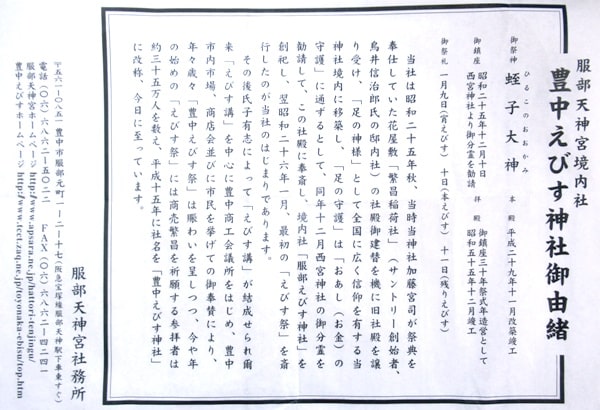 服部天神宮境内社
豊中えびす神社御由緒
御祭神 蛭子大神
ひるこのおおかみ
本殿 平成二十九年十一月改築竣工
御鎮座 昭和二十五年十二月十日
西宮神社より御分霊を勧請
拝殿 御鎮座三十年祭式年造営として
昭和五十五年十二月竣工
御祭礼 一月九日(宵えびす) 十日(本えびす) 十一日(残りえびす)
当社は昭和二十五年秋、当時当神社加藤宮司が祭典を
奉仕していた花屋敷「繁昌稲荷社」(サントリー創始者、
鳥井信治郎氏の邸内社)の社殿御建替を機に旧社殿を譲
り受け、「足の神様」として全国に広く信仰を有する当
神社境内に移築し、「足の守護」は「おあし(お金)の
守護」に通ずるとして、同年十二月西宮神社の御分霊を
勧請して、この社殿に奉斎し、境内社「服部えびす神社」を
創祀し、翌昭和二十六年一月、最初の「えびす祭」を斎
行したのが当社のはじまりであります。
その後氏子有志によって「えびす講」が結成せられ爾
来「えびす講」を中心に豊中商工会議所をはじめ、豊中
市内市場、商店会並びに市民を挙げての御奉賛により、
年々歳々「豊中えびす祭」は賑わいを呈しつつ、今や年
の始めの「えびす祭」には商売繁昌を祈願する参拝者は
約三十五万人を数え、平成十五年に社名を「豊中えびす神社」
に改称、今日に至っています。
服部天神宮社務所
〒五六一-〇八五一 豊中市服部元町一-二-十七(阪急宝塚線服部天神駅下車東すぐ)
電話(〇六)六八六二-五〇二二 FAX(〇六)六八六二-四二四一
服部天神宮ホームページ http://www.apsara.ne.jp/hattori-tenjingu/
豊中えびすホームページ http://www.tcct.zaq.ne.jp/toyonaka-ebisu/top.htm